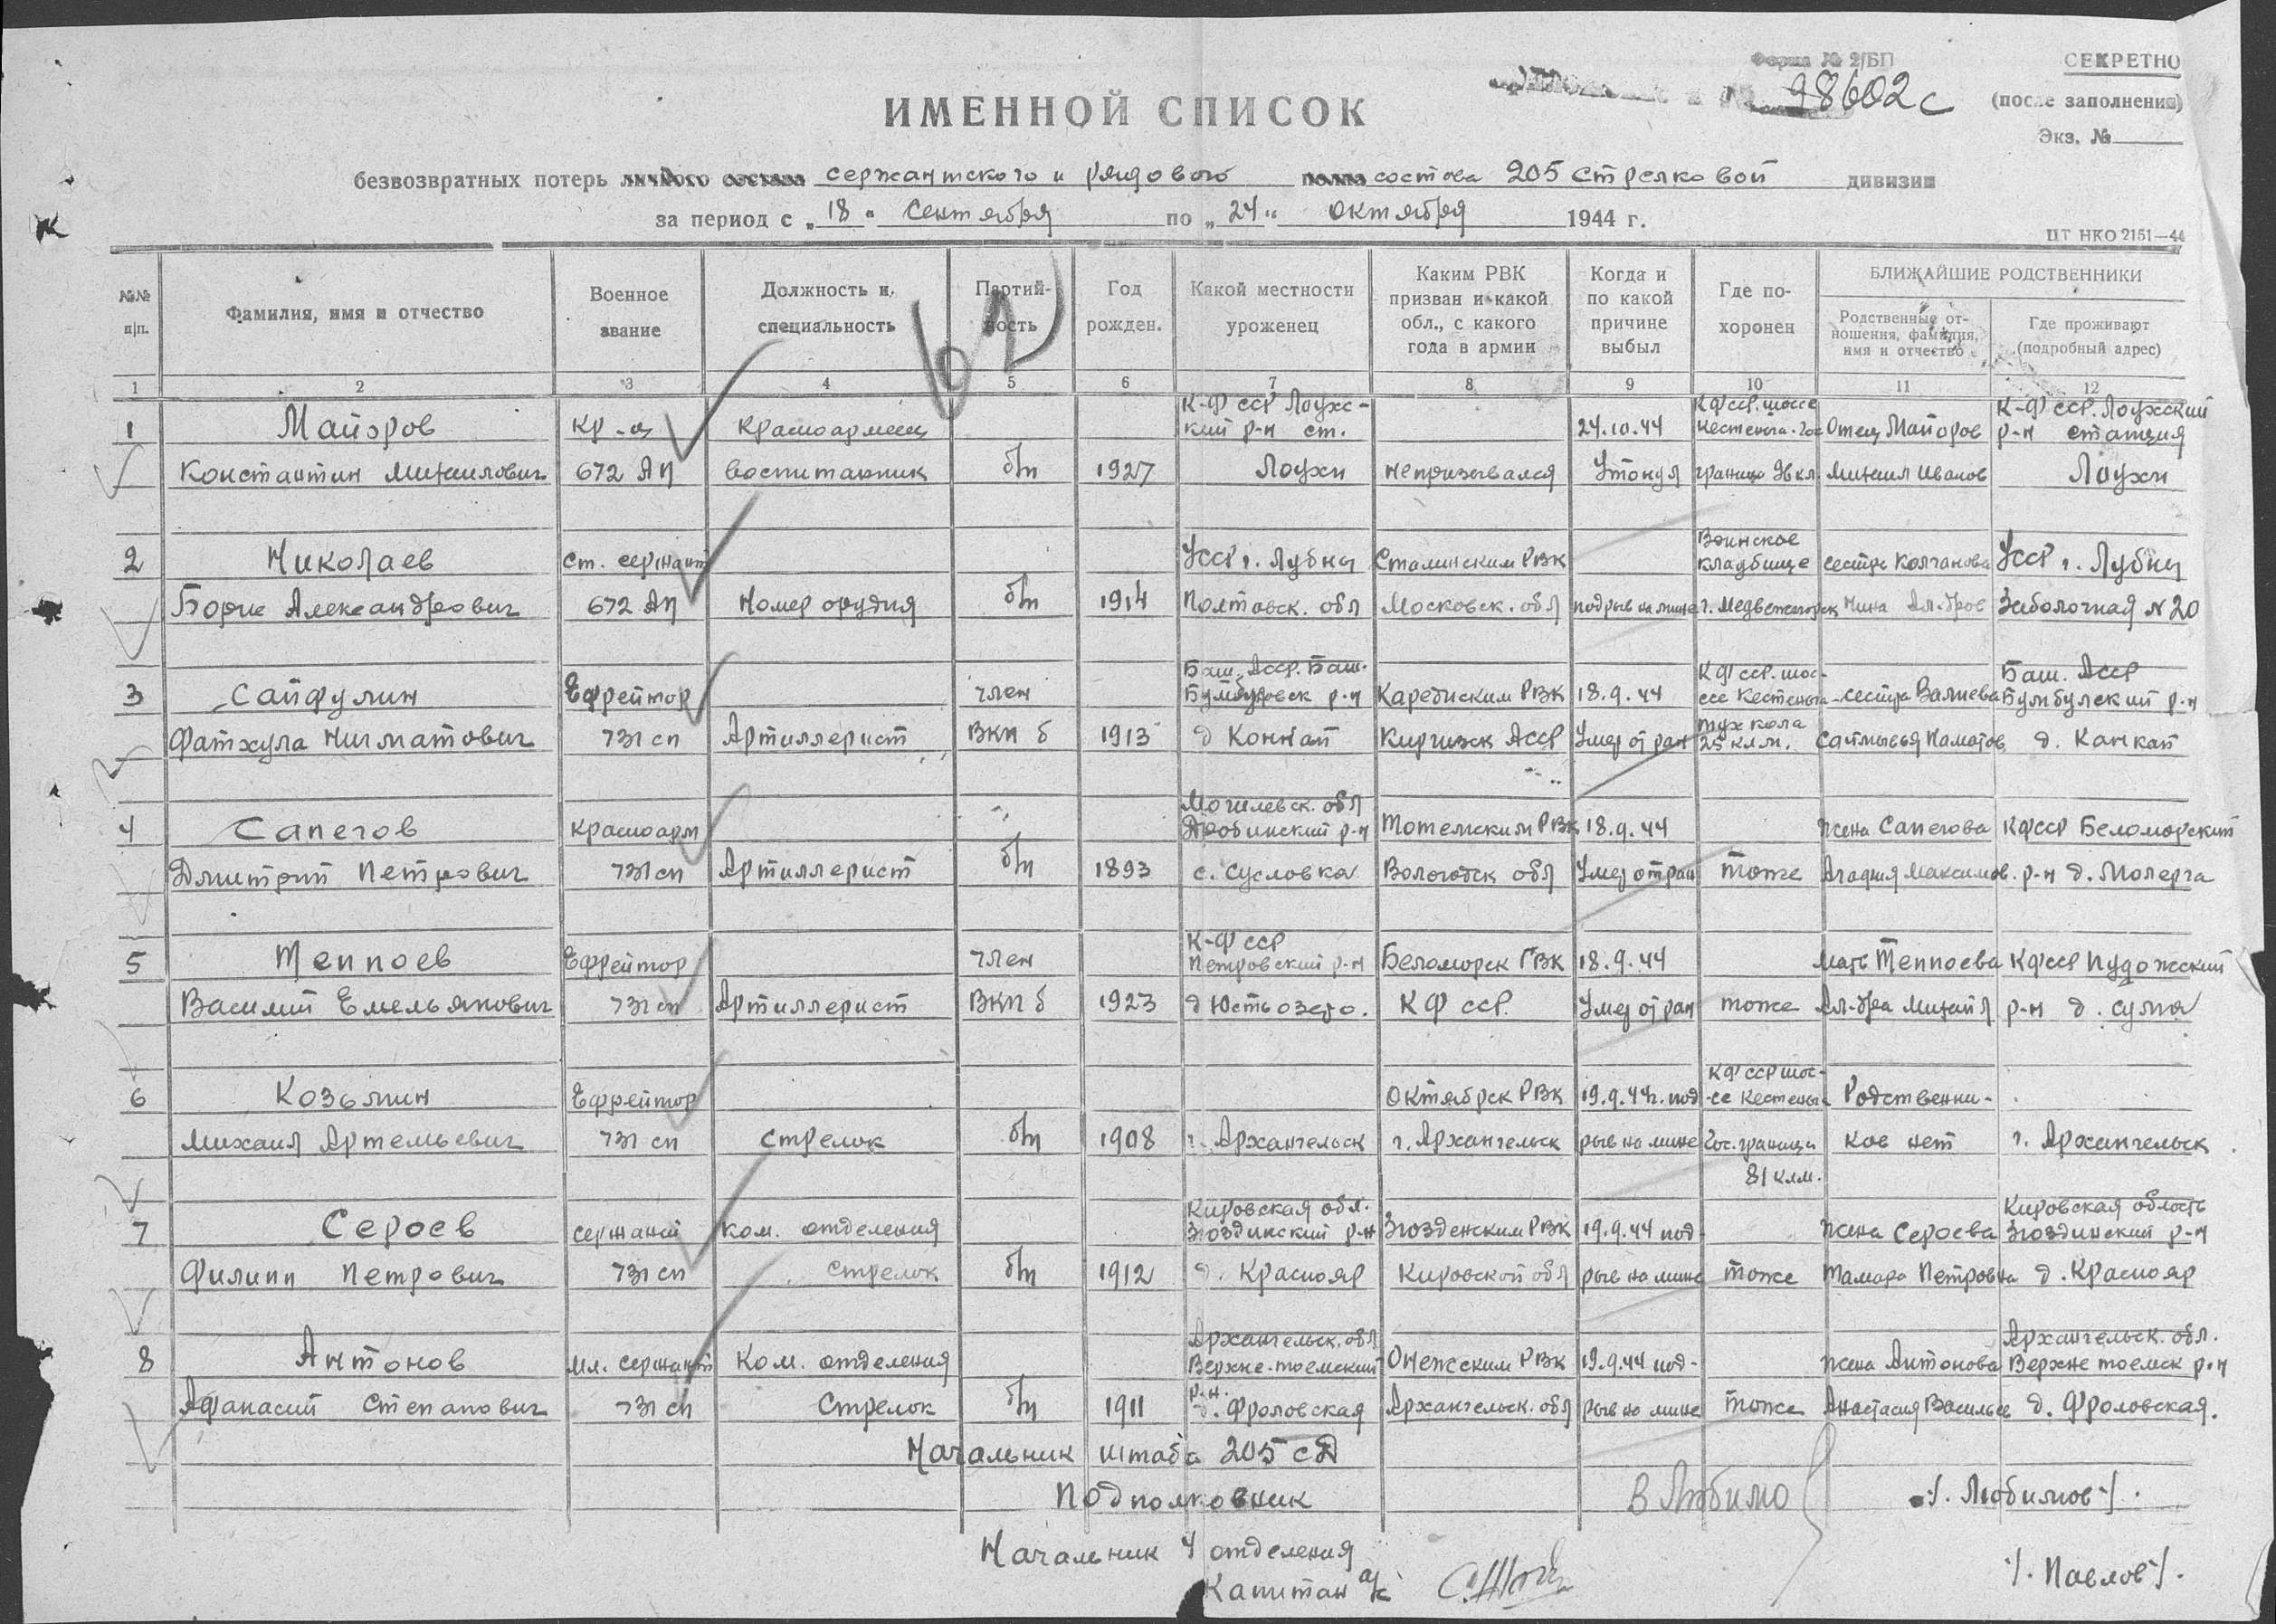 Форма № 2/БП
СЕКРЕТНО
98602с
(после заполнения)
Экз. №
ИМЕННОЙ СПИСОК
безвозвратных потерь личного состава сержантского и рядового состава 205 стрелковой дивизии
за период с „18“ сентября по „24“ октября 1944 г.
ЦТ НКО 2151—44
62
№№ п/п.
Фамилия, имя и отчество
Военное звание
Должность и специальность
Партийность
Год рожден.
Какой местности уроженец
Каким РВК призван и какой обл., с какого года в армии
Когда и по какой причине выбыл
Где похоронен
БЛИЖАЙШИЕ РОДСТВЕННИКИ
Родственные отношения, фамилия, имя и отчество
Где проживают (подробный адрес)
1 2 3 4 5 6 7 8 9 10 11 12
К-Ф ССР Лоухс- КФССР. шоссе К-Ф ССР. Лоухский
1 Майоров Кр-ц Красноармеец кий р-н ст. 24.10.44 Кестеньга-Гос Отец Майоров р-н станция
Константин Михаилович 672 АП воспитанник б/п 1927 Лоухи непризывался Утонул граница Михаил Иванов Лоухи
Воинское
2 Николаев Ст. сержант УССР г. Лубны Сталинским РВК кладбище сестра Колчанова УССР г. Лубны
Борис Александрович 672 АП Номер орудия б/п 1914 Полтавск. обл Московск. обл подрыв на мине г. Медвежегорск Нина Ал-дров Заболотная N 20
Баш. АССР. Баш. КФССР. шос- Баш. АССР
3 Сайфулин Ефрейтор член р-н РВК 18.9.44 се Кестеньга- сестра Валиева р-н
Фатхула Нигматович 731 сп Артиллерист ВКП б 1913 д Конкат АССР Умер от ран 25 клм. д. Канкат
Могилевск. обл
4 Сапегов Красноарм Дробинский р-н Тотемским РВК 18.9.44 жена Сапегова КФССР Беломорский
Дмитрий Петрович 731 сп Артиллерист б/п 1893 с. Сусловка Вологодск обл Умер от ран тоже Агафия Максимов. р-н д. Молерга
К-Ф ССР
5 Теппоев Ефрейтор член Петровский р-н Беломорск РВК 18.9.44 мать Теппоева КФССР Пудожский
Василий Емельянович 731 сп Артиллерист ВКП б 1923 д Юстьозеро. КФ ССР. Умер от ран тоже Ал-дра Михайл р-н д. Сума
КФ ССР шос-
6 Козьмин Ефрейтор Октябрск РВК 19.9.44г. под- се Кестеньга Родственни-
Михаил Артемьевич 731 сп Стрелок б/п 1908 г. Архангельск г. Архангельск рыв на мине Гос. граница ков нет г. Архангельск
81 клм.
Кировская обл. Кировская область
7 Сероев сержант Ком. отделения Зюздинский р-н Зюзденским РВК 19.9.44 под- жена Сероева Зюздинский р-н
Филипп Петрович 731 сп Стрелок б/п 1912 д. Краснояр Кировской обл рыв на мине тоже Тамара Петровна д. Краснояр
Архангельск. обл Архангельск. обл.
8 Антонов мл. сержант Ком. отделения Верхне-тоемский Онежским РВК 19.9.44 под- жена Антонова Верхне тоемск р-н
р-н.
Афанасий Степанович 731 сп Стрелок б/п 1911 д. Фроловская Архангельск. обл рыв на мине тоже Анастасия Васильев д. Фроловская.
Начальник штаба 205 СД
Подполковник В Любимо /. Любимов /.
Начальник 4 отделения
Капитан а/с /. Павлов /.